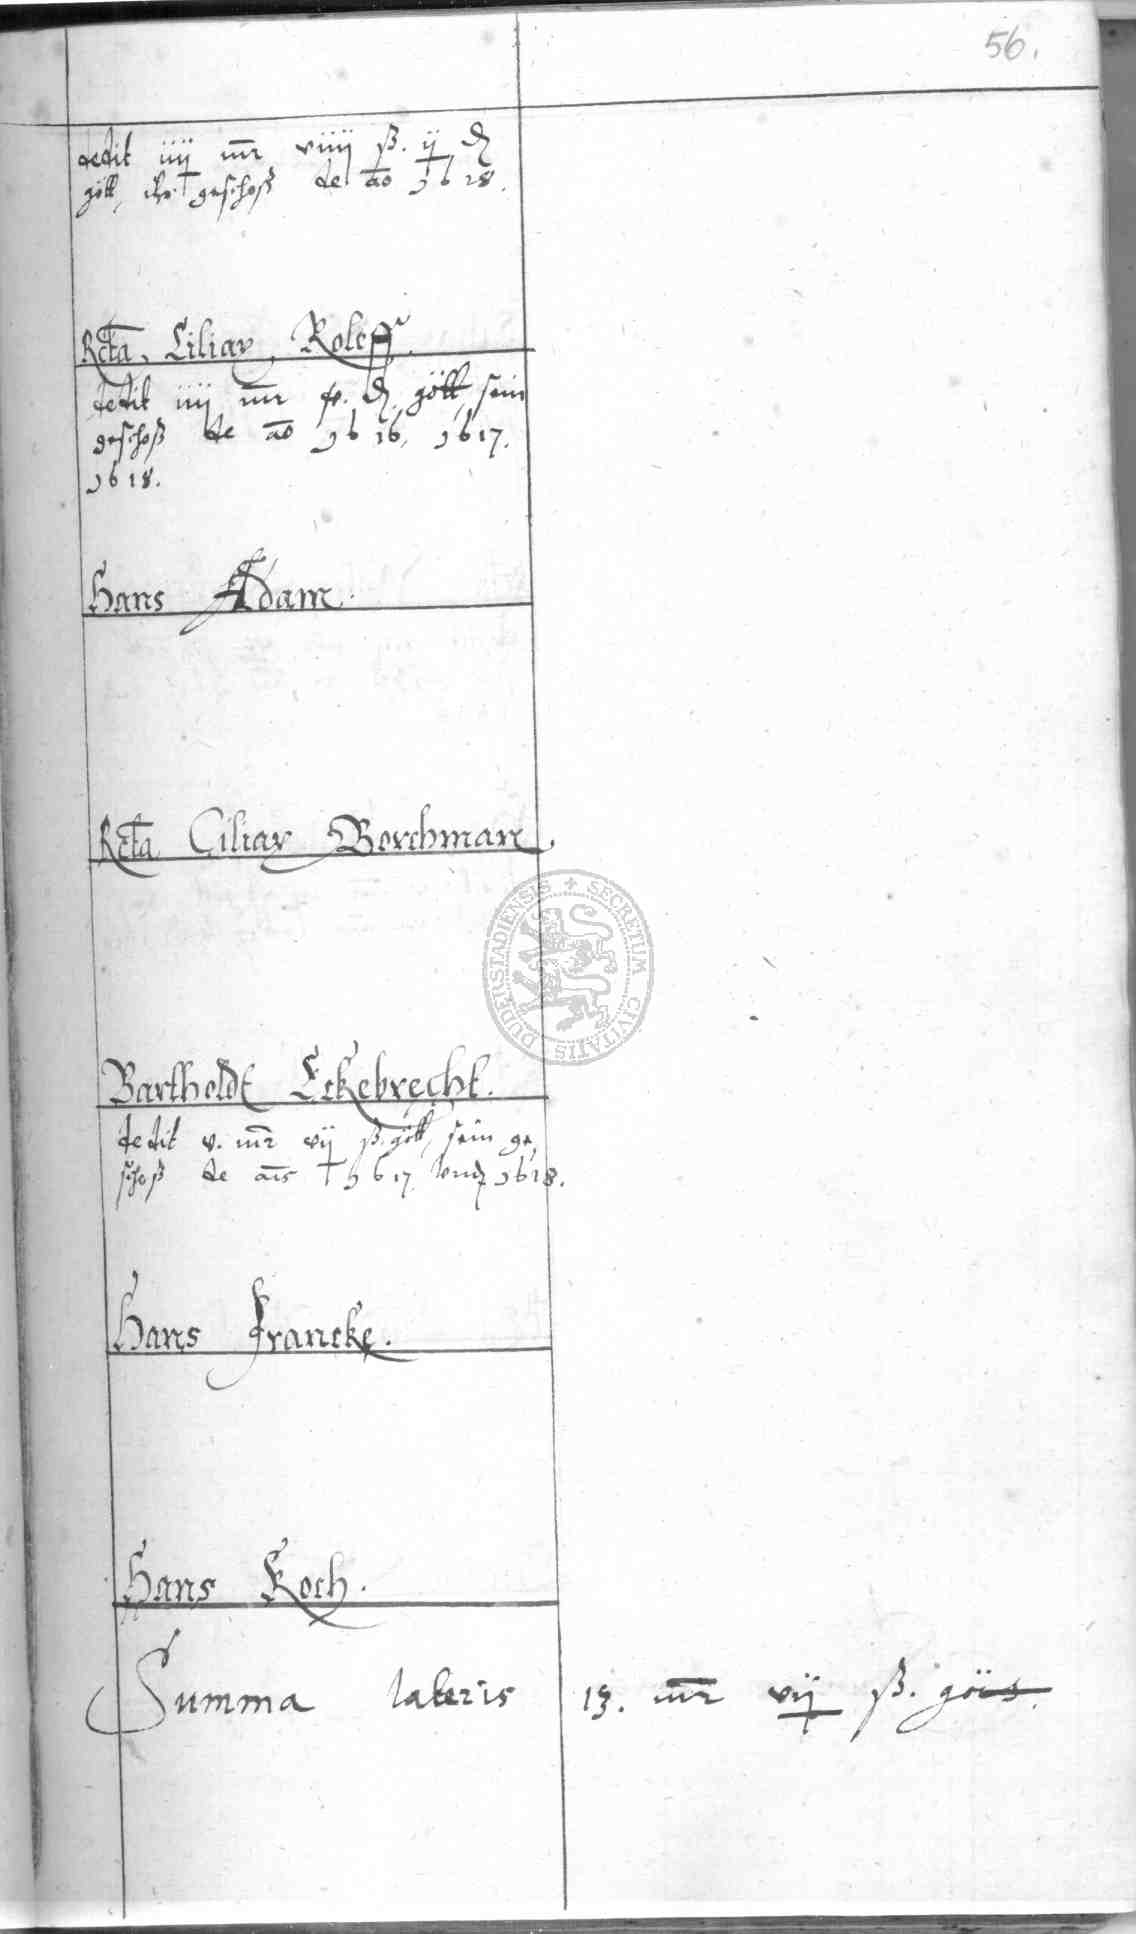 56.
dedit iiij mr viiij ß. ij ₰
gött, ihr geschoß de ao 1618.
Rcta. Ciliax Roleff.
dedit iiij mr ₰ gött, sein
geschoß de ao 1616, 1617.
1618.
Hans Adam.
Rcta Ciliax Borchman.
Bartholdt Eckebrecht.
dedit v. mr vij ß. gött, sein ge,
schoß de ais 1617 vnd 1618.
Hans Francke.
Hans Koch.
Summa lateris 13. mr vij ß. göis.
DUDERSTADIENSIS + SECRETUM CIVITATIS